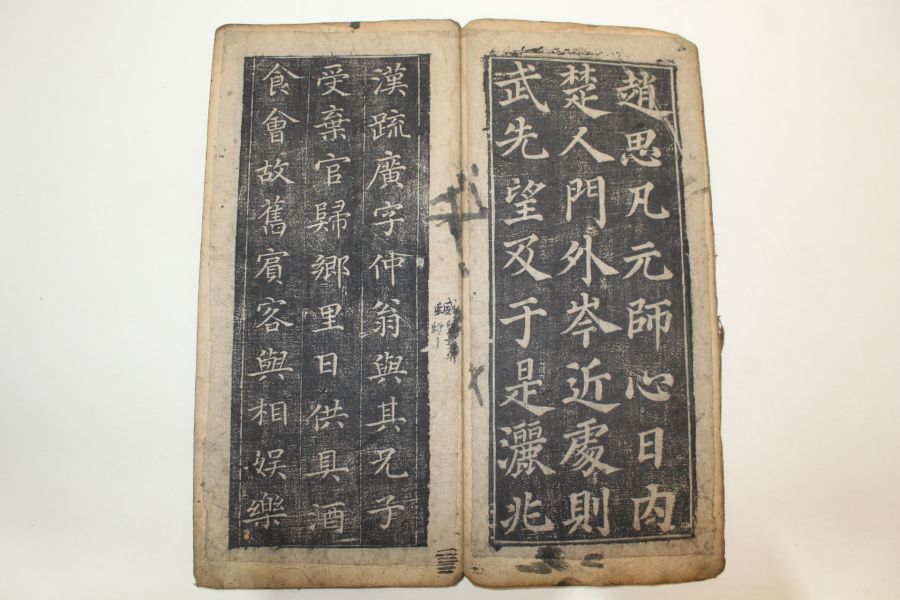 趙思凡元師心日内
楚人門外岑近處則
武先望及于是灑兆
漢疏廣字仲翁與其兄子
受棄官歸鄉里日供具酒
食會故舊賓客與相娛樂